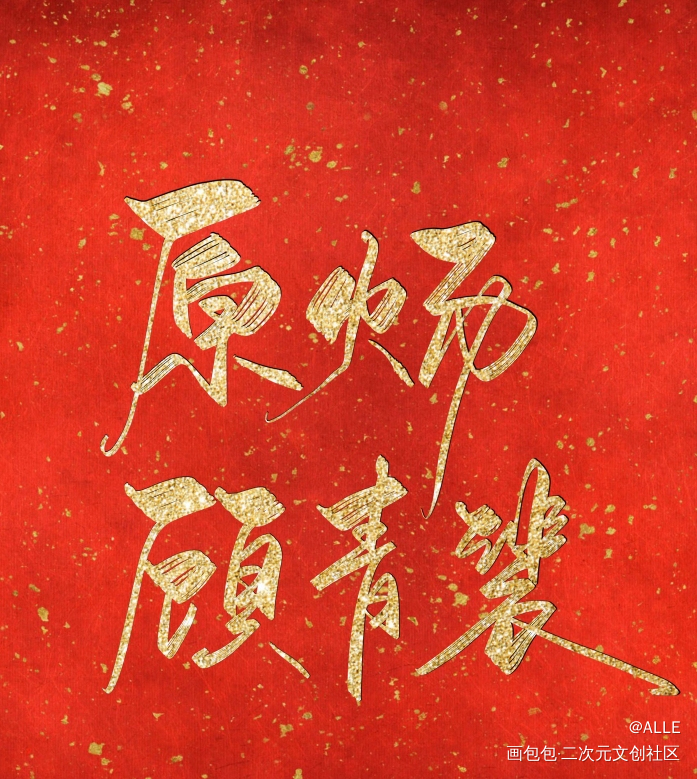 原炀
顾青裴
@ALLE
画包包·二次元文创社区